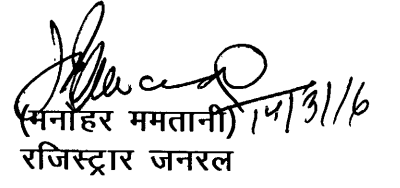 (मनोहर ममतानी) 14/3/16
रजिस्ट्रार जनरल